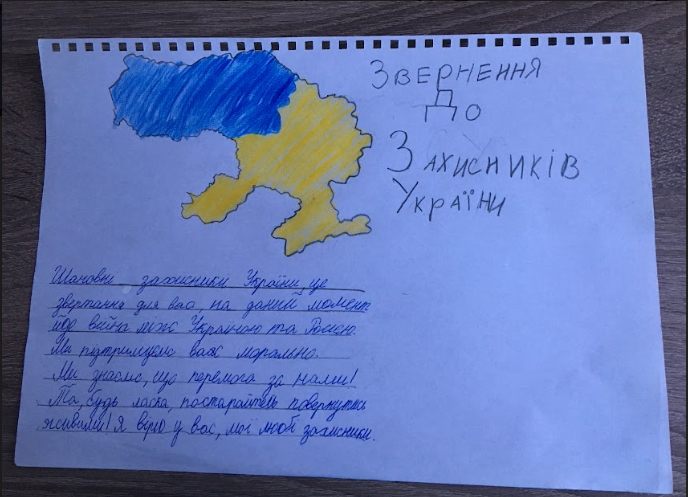 Звернення
До
Захисників
України
Шановні захисники України, це
звертання для вас, на даний момент
йде війна між Україною та Росією.
Ми підтримуємо вас морально.
Ми знаємо, що перемога за нами!
Та, будь ласка, постарайтесь повернутись
живими! Я вірю у вас, мої любі захисники.